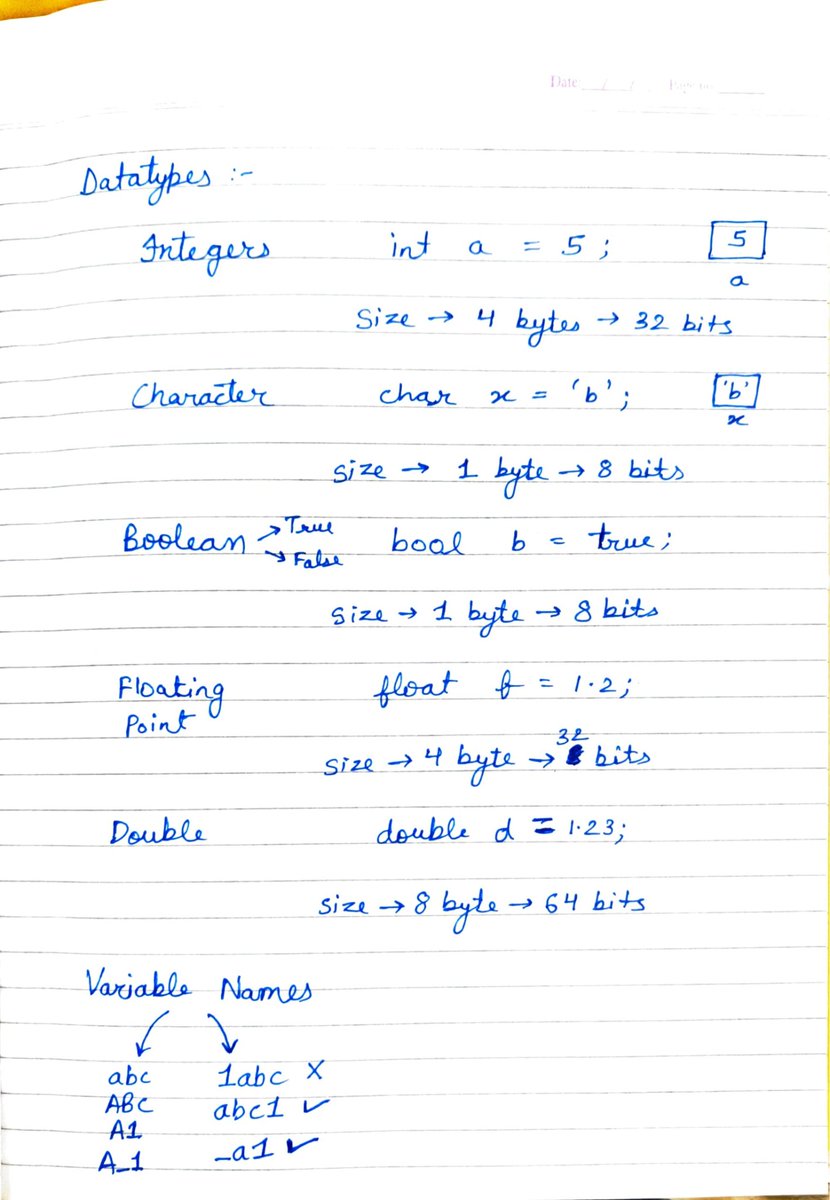 Date: / /
Datatypes :-
Integers int a = 5; 5
a
Size → 4 bytes → 32 bits
Character char x = 'b'; 'b'
x
size → 1 byte → 8 bits
Boolean → True bool b = true;
→ False
size → 1 byte → 8 bits
Floating float f = 1.2;
Point
size → 4 byte → 32 bits
Double double d = 1.23;
size → 8 byte → 64 bits
Variable Names
abc 1abc X
ABC abc1 ✓
A1
A_1 _a1 ✓